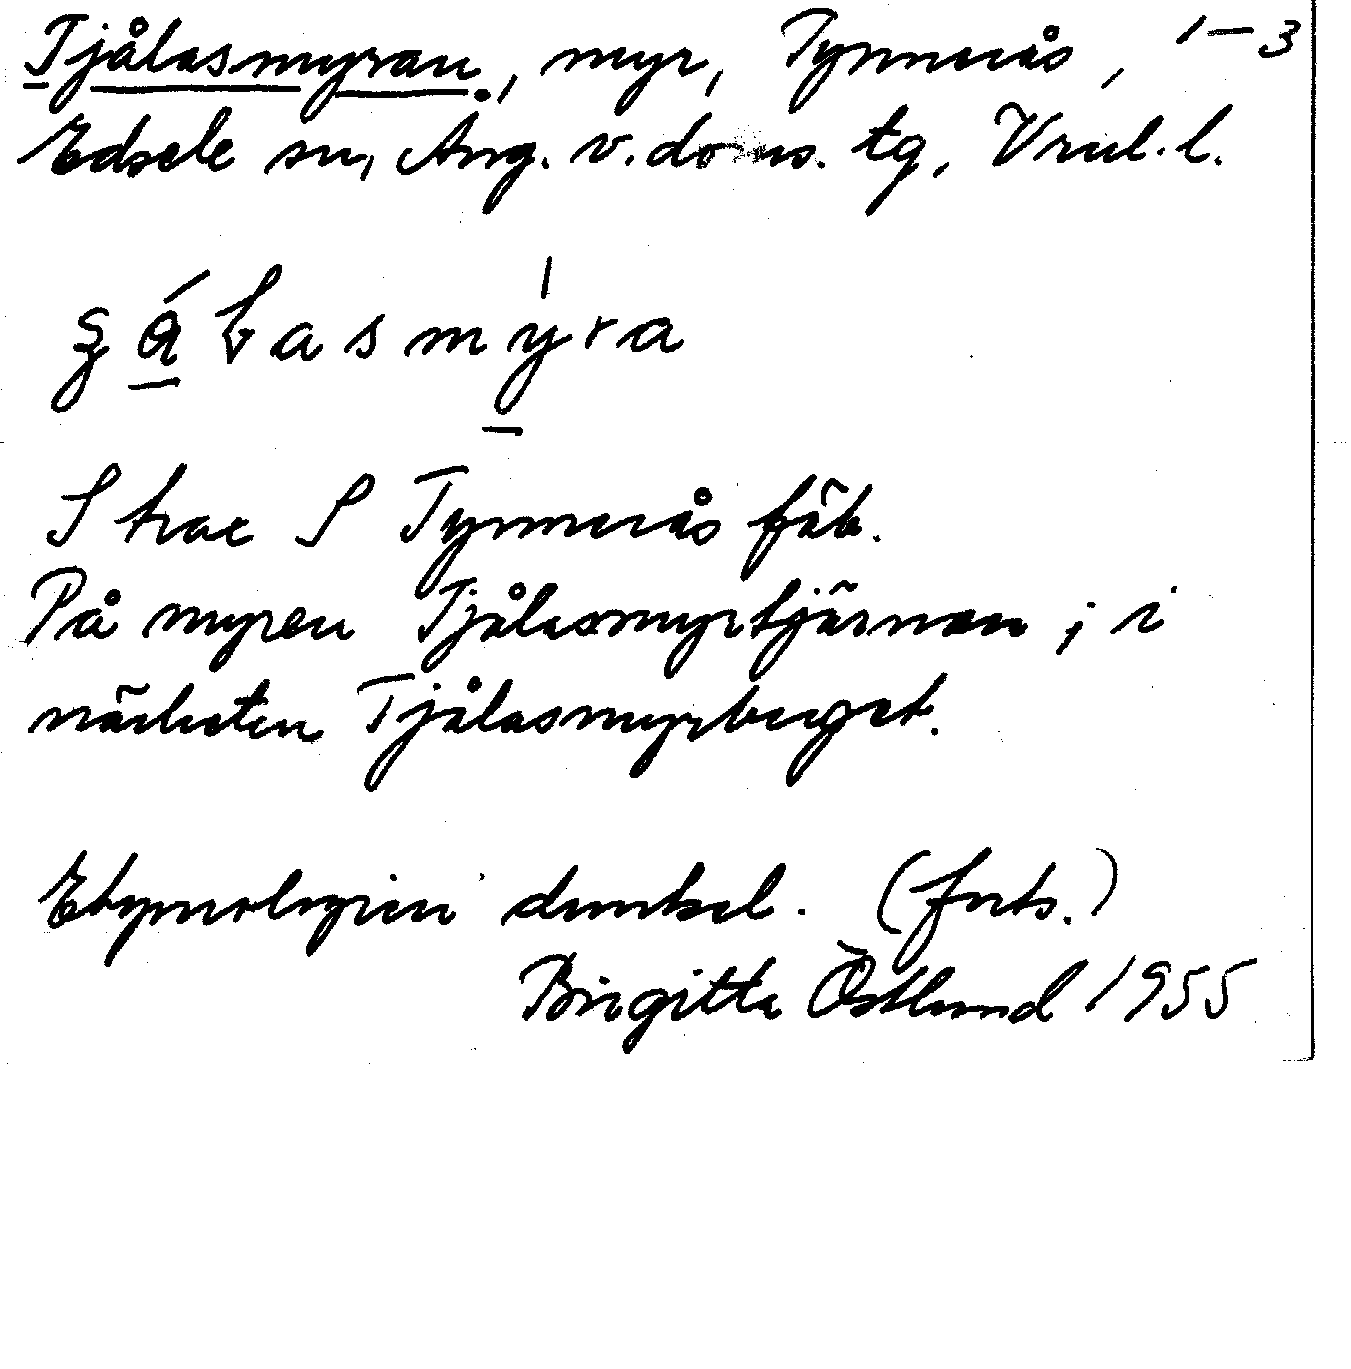 Tjålasmyran, myr, Tynnerås, 1–3
Edsele sn, Ång. v. doms. tg, Vrul. l.
Strax S Tynnerås fäb.
På myren Tjålasmyrtjärnan; i
närheten Tjålasmyrberget.
Etymologien dunkel. (forts.)
Birgitta Östlund 1955